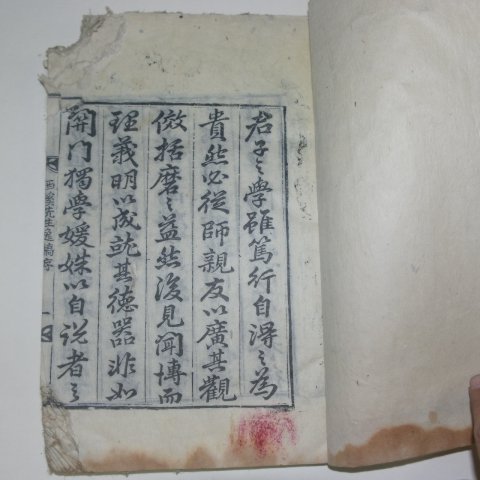 君子之學雖篤行自得之爲
貴然必從師親友以廣其觀
傚括磨之益然後見聞博而
理義明以成就其德器非如
閉门獨學媛姝以自說者之
西溪先生逸稿序
一